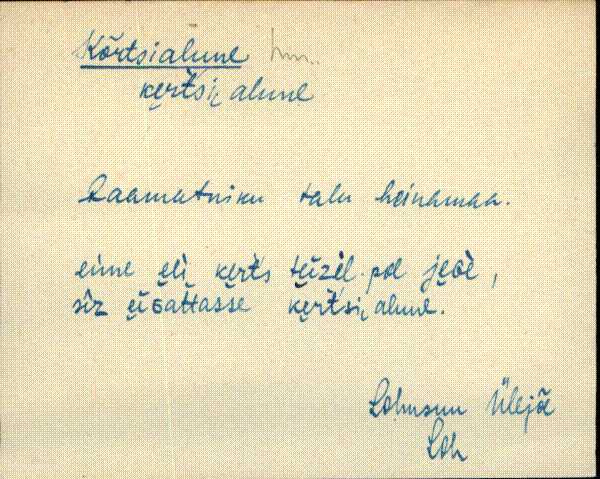 Kõrtsialune
kȩrt́si̮ alune
Raamatniku talu heinamaa.
enne ȩli̮ kȩrt́s tȩizèl pol jȩɢè,
sîz ȩiɢattasse kȩrt́si̮ alune.
Lohusuu Ülejõe
Loh